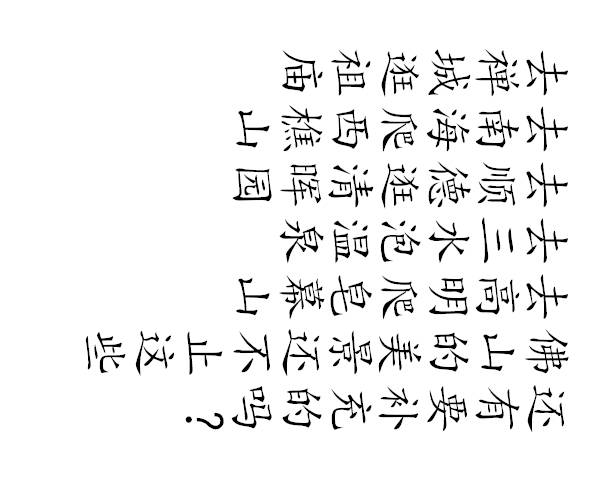 去禅城逛祖庙
去南海爬西樵山
去顺德逛清晖园
去三水泡温泉
去高明爬皂幕山
佛山的美景还不止这些
还有要补充的吗？